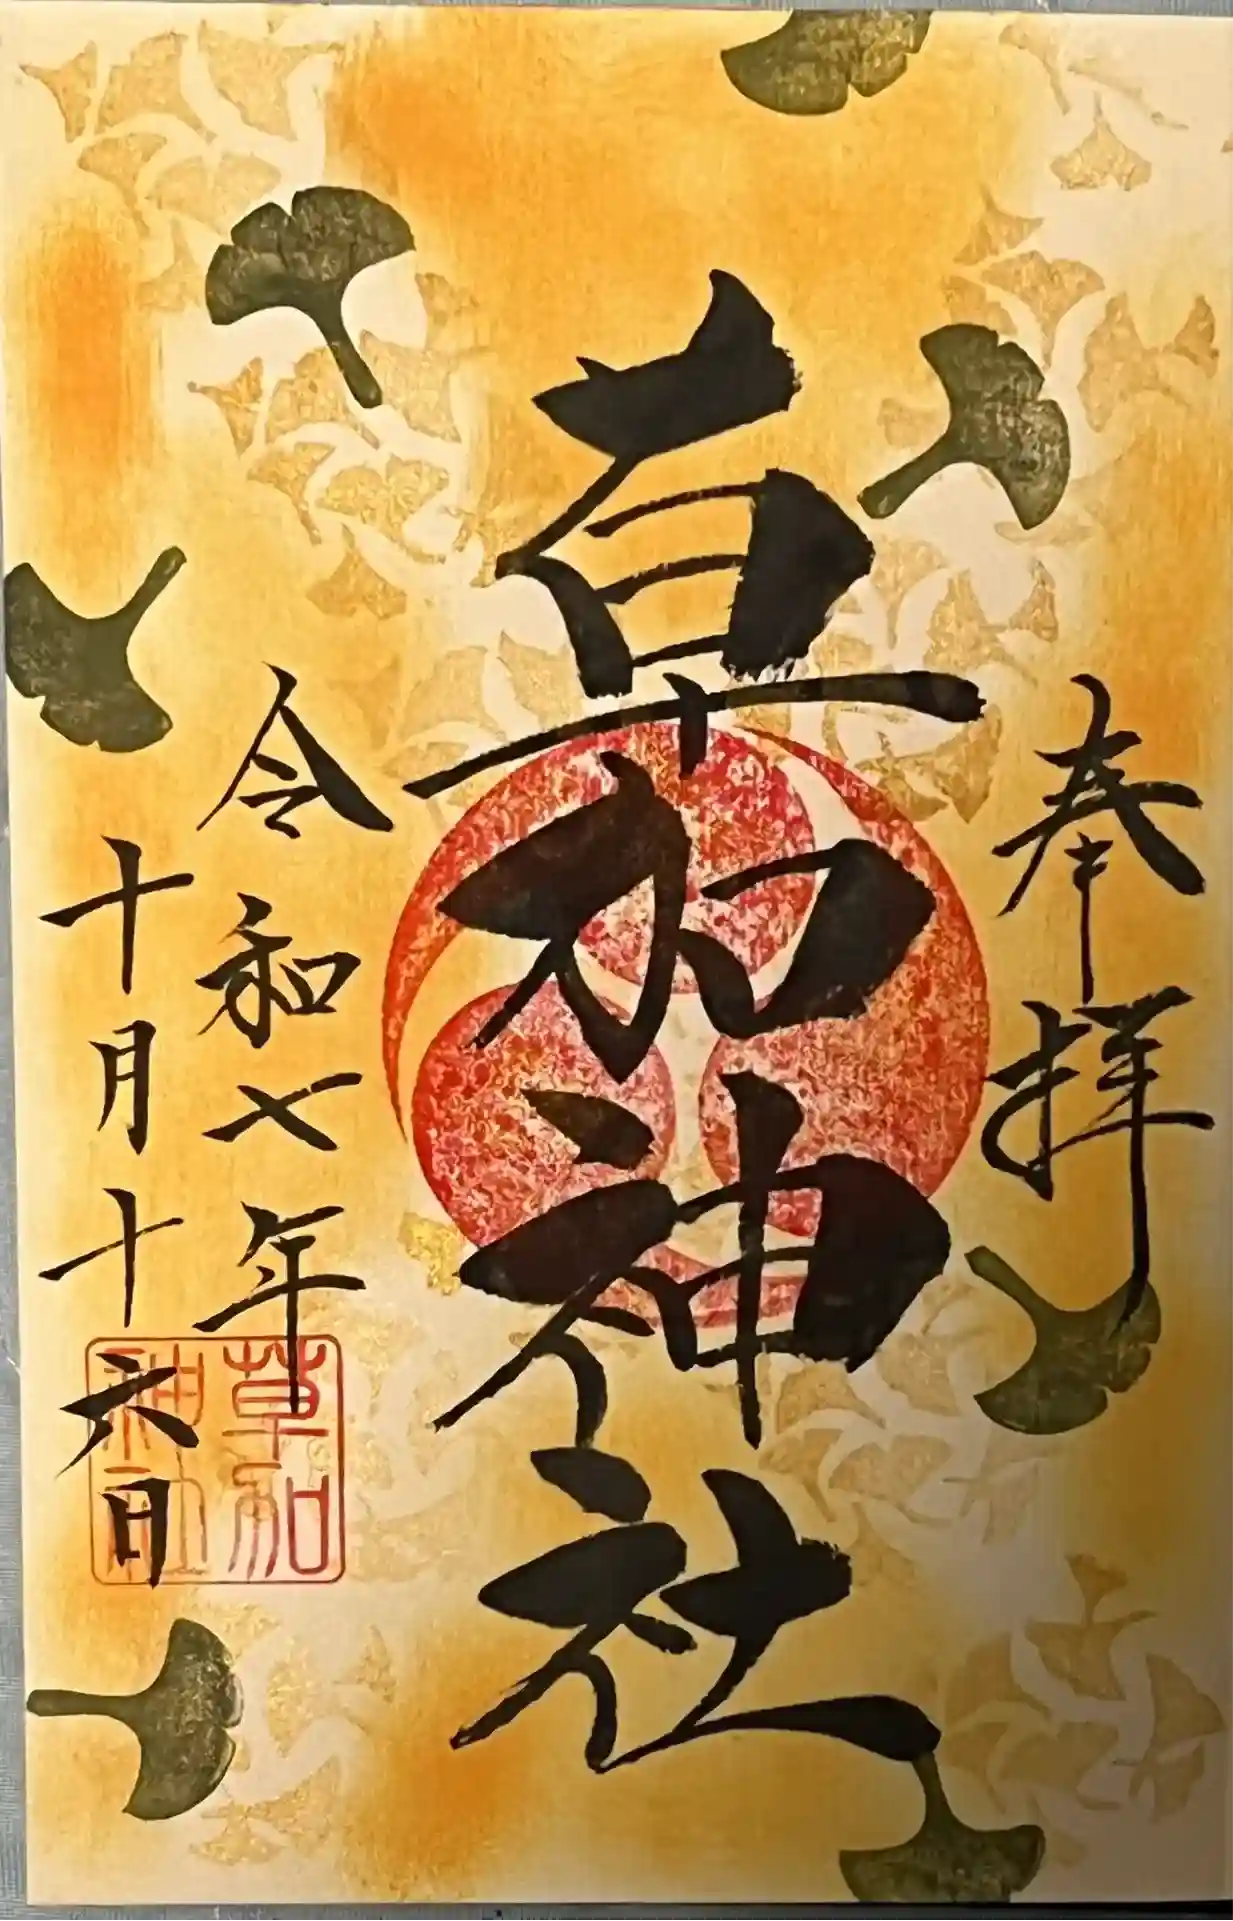 奉拝
草和神社
令和七年
十月十六日
草和
神社